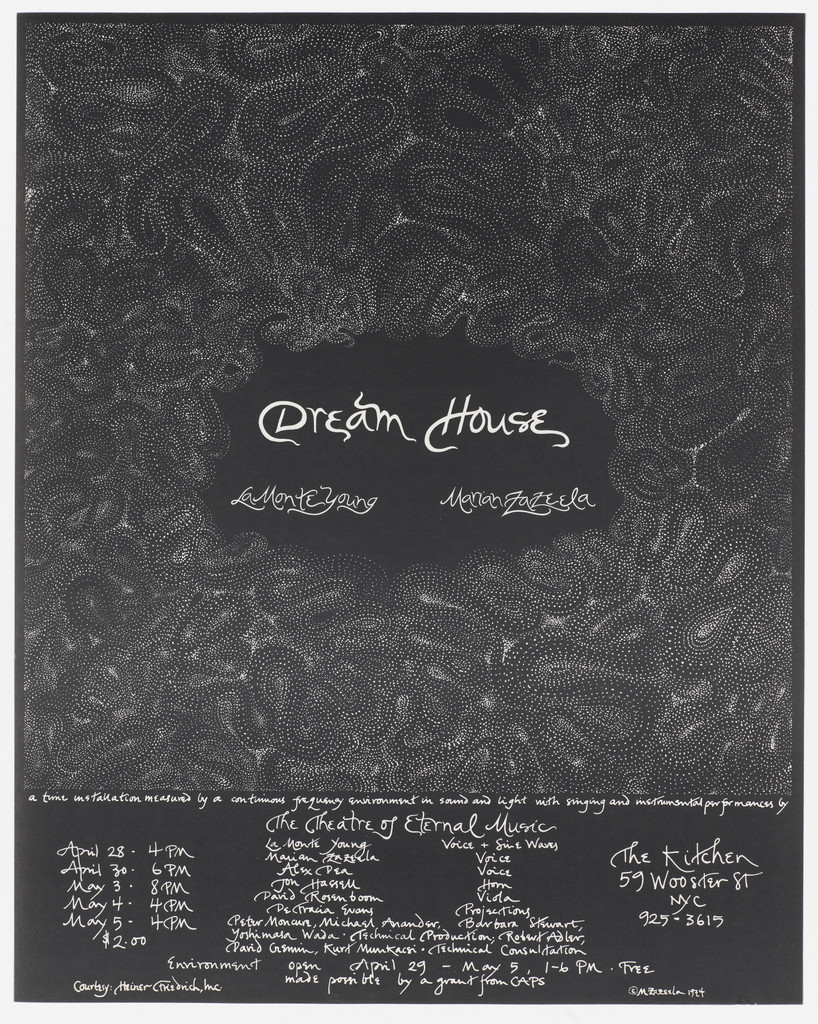 Dream House
La Monte Young Marian Zazeela
a time installation measured by a continuous frequency environment in sound and light with singing and instrumental performances by
The Theatre of Eternal Music
La Monte Young Voice + Sine Waves
Marian Zazeela Voice
Alex Dea Voice
Jon Hassell Horn
David Rosenboom Viola
De Tracia Evans Projections
Peter Moncure, Michael Anander, Barbara Stewart,
Yoshimasa Wada · Technical Production; Robert Adler,
David Gremin, Kurt Munkacsi · Technical Consultation
April 28 · 4 PM
April 30 · 6 PM
May 3 · 8 PM
May 4 · 4 PM
May 5 · 4 PM
$2.00
The Kitchen
59 Wooster St
NYC
925-3615
Environment open April 29 – May 5, 1-6 PM · Free
made possible by a grant from CAPS
Courtesy: Heiner Friedrich, Inc.
© M. Zazeela 1974